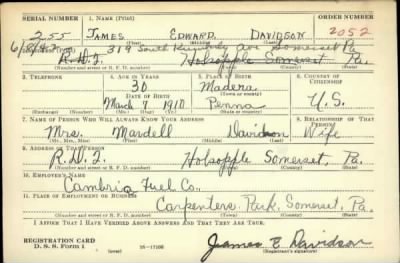 SERIAL NUMBER 1. NAME (Print) ORDER NUMBER
255 JAMES EDWARD DAVIDSON 2052
6/8/42 319 South Kimberly Ave Somerset Pa
R.D.1 Holsopple Somerset Pa.
(Number and street or R. F. D. number) (Town) (County) (State)
3. TELEPHONE 4. AGE IN YEARS 5. PLACE OF BIRTH 6. COUNTRY OF CITIZENSHIP
30 Madera
DATE OF BIRTH (Town or county)
March 7 1910 Penna U.S.
(Exchange) (Number) (Mo.) (Day) (Yr.) (State or country)
7. NAME OF PERSON WHO WILL ALWAYS KNOW YOUR ADDRESS 8. RELATIONSHIP OF THAT PERSON
Mrs. Mardell Davidson Wife
(Mr., Mrs., Miss) (First) (Middle) (Last)
9. ADDRESS OF THAT PERSON
R.D.1 Holsopple Somerset, Pa.
(Number and street or R. F. D. number) (Town) (County) (State)
10. EMPLOYER'S NAME
Cambria Fuel Co.,
11. PLACE OF EMPLOYMENT OR BUSINESS
Carpenters Park, Somerset, Pa.
(Number and street or R. F. D. number) (Town) (County) (State)
I AFFIRM THAT I HAVE VERIFIED ABOVE ANSWERS AND THAT THEY ARE TRUE.
REGISTRATION CARD
D. S. S. Form 1 16-17105 James E Davidson
(Registrant's signature)